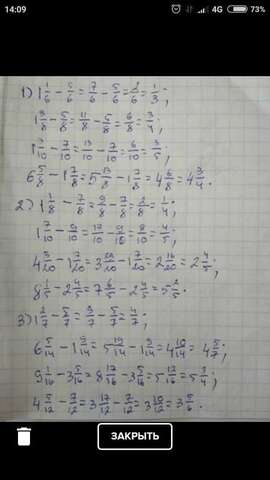 14:09
4G 73%
1) 1 1/6 - 5/6 = 7/6 - 5/6 = 2/6 = 1/3;
1 3/8 - 5/8 = 11/8 - 5/8 = 6/8 = 3/4;
1 3/10 - 7/10 = 13/10 - 7/10 = 6/10 = 3/5;
6 5/8 - 1 7/8 = 5 13/8 - 1 7/8 = 4 6/8 = 4 3/4.
2) 1 1/8 - 7/8 = 9/8 - 7/8 = 2/8 = 1/4;
1 7/10 - 9/10 = 17/10 - 9/10 = 8/10 = 4/5;
4 3/20 - 1 7/20 = 3 23/20 - 1 7/20 = 2 16/20 = 2 4/5;
8 1/5 - 2 4/5 = 7 6/5 - 2 4/5 = 5 2/5.
3) 1 2/7 - 5/7 = 9/7 - 5/7 = 4/7;
6 5/14 - 1 9/14 = 5 19/14 - 1 9/14 = 4 10/14 = 4 5/7;
9 1/16 - 3 5/16 = 8 17/16 - 3 5/16 = 5 12/16 = 5 3/4;
4 5/12 - 7/12 = 3 17/12 - 7/12 = 3 10/12 = 3 5/6.
ЗАКРЫТЬ